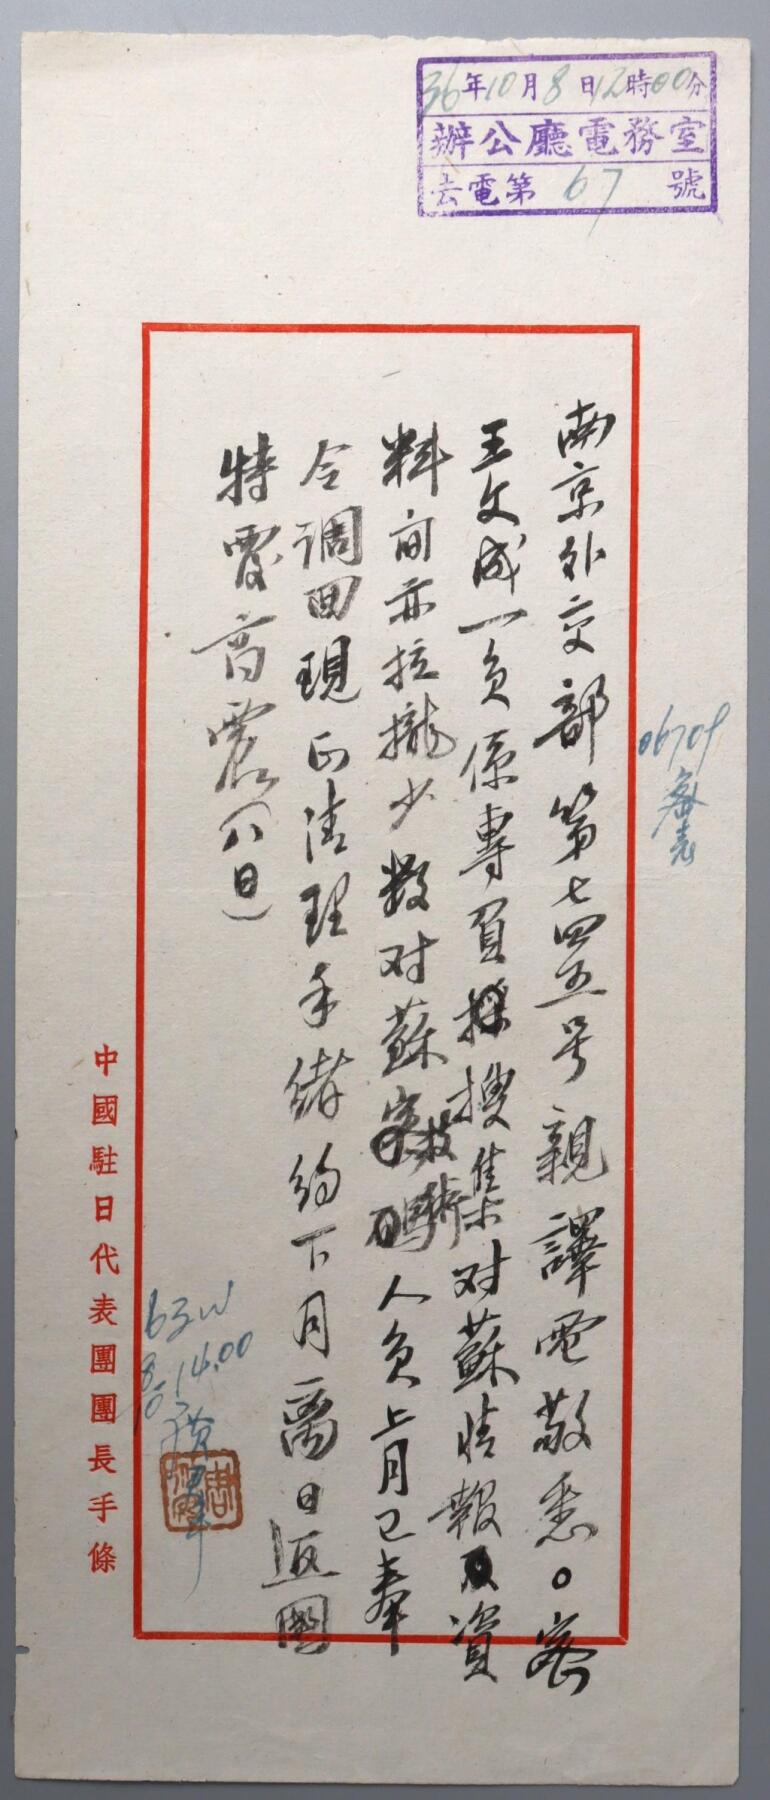 36年10月8日12時00分
辦公廳電務室
去電第67號
南京外交部第七四五号親譯電敬悉。密
王文成一員係專負搜集对蘇情報及資
料间亦拉攏少数对蘇技術人員上月已奉
令调回現正清理手續約下月离日返國
特覆商震(八日)
06709
中國駐日代表團團長手條
63W
8/10 14.00